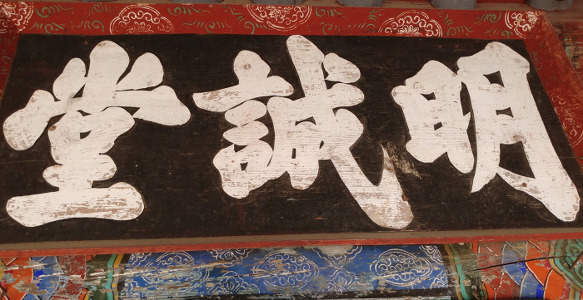 明誠堂